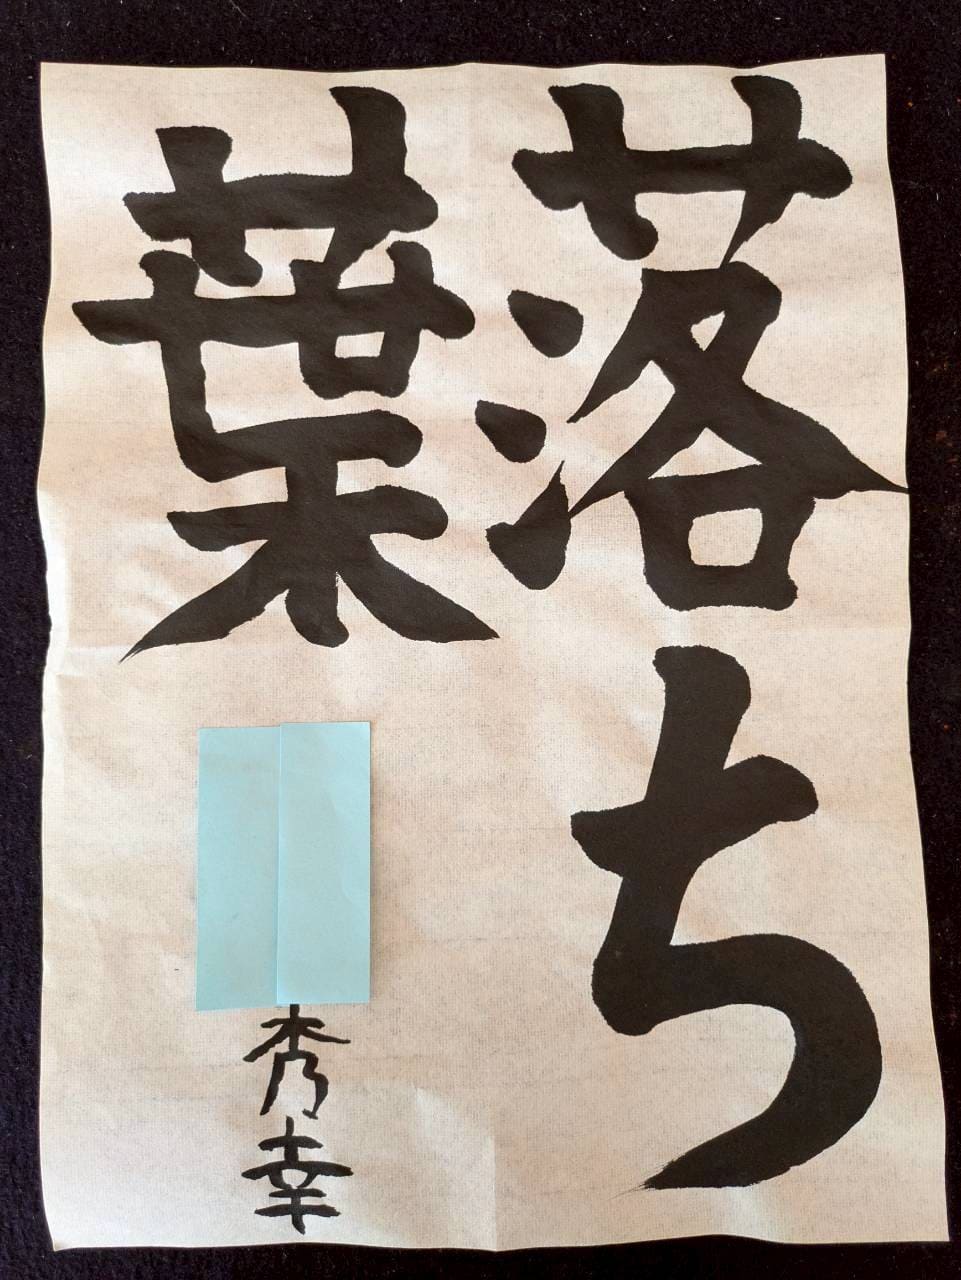 落ち
葉
秀幸